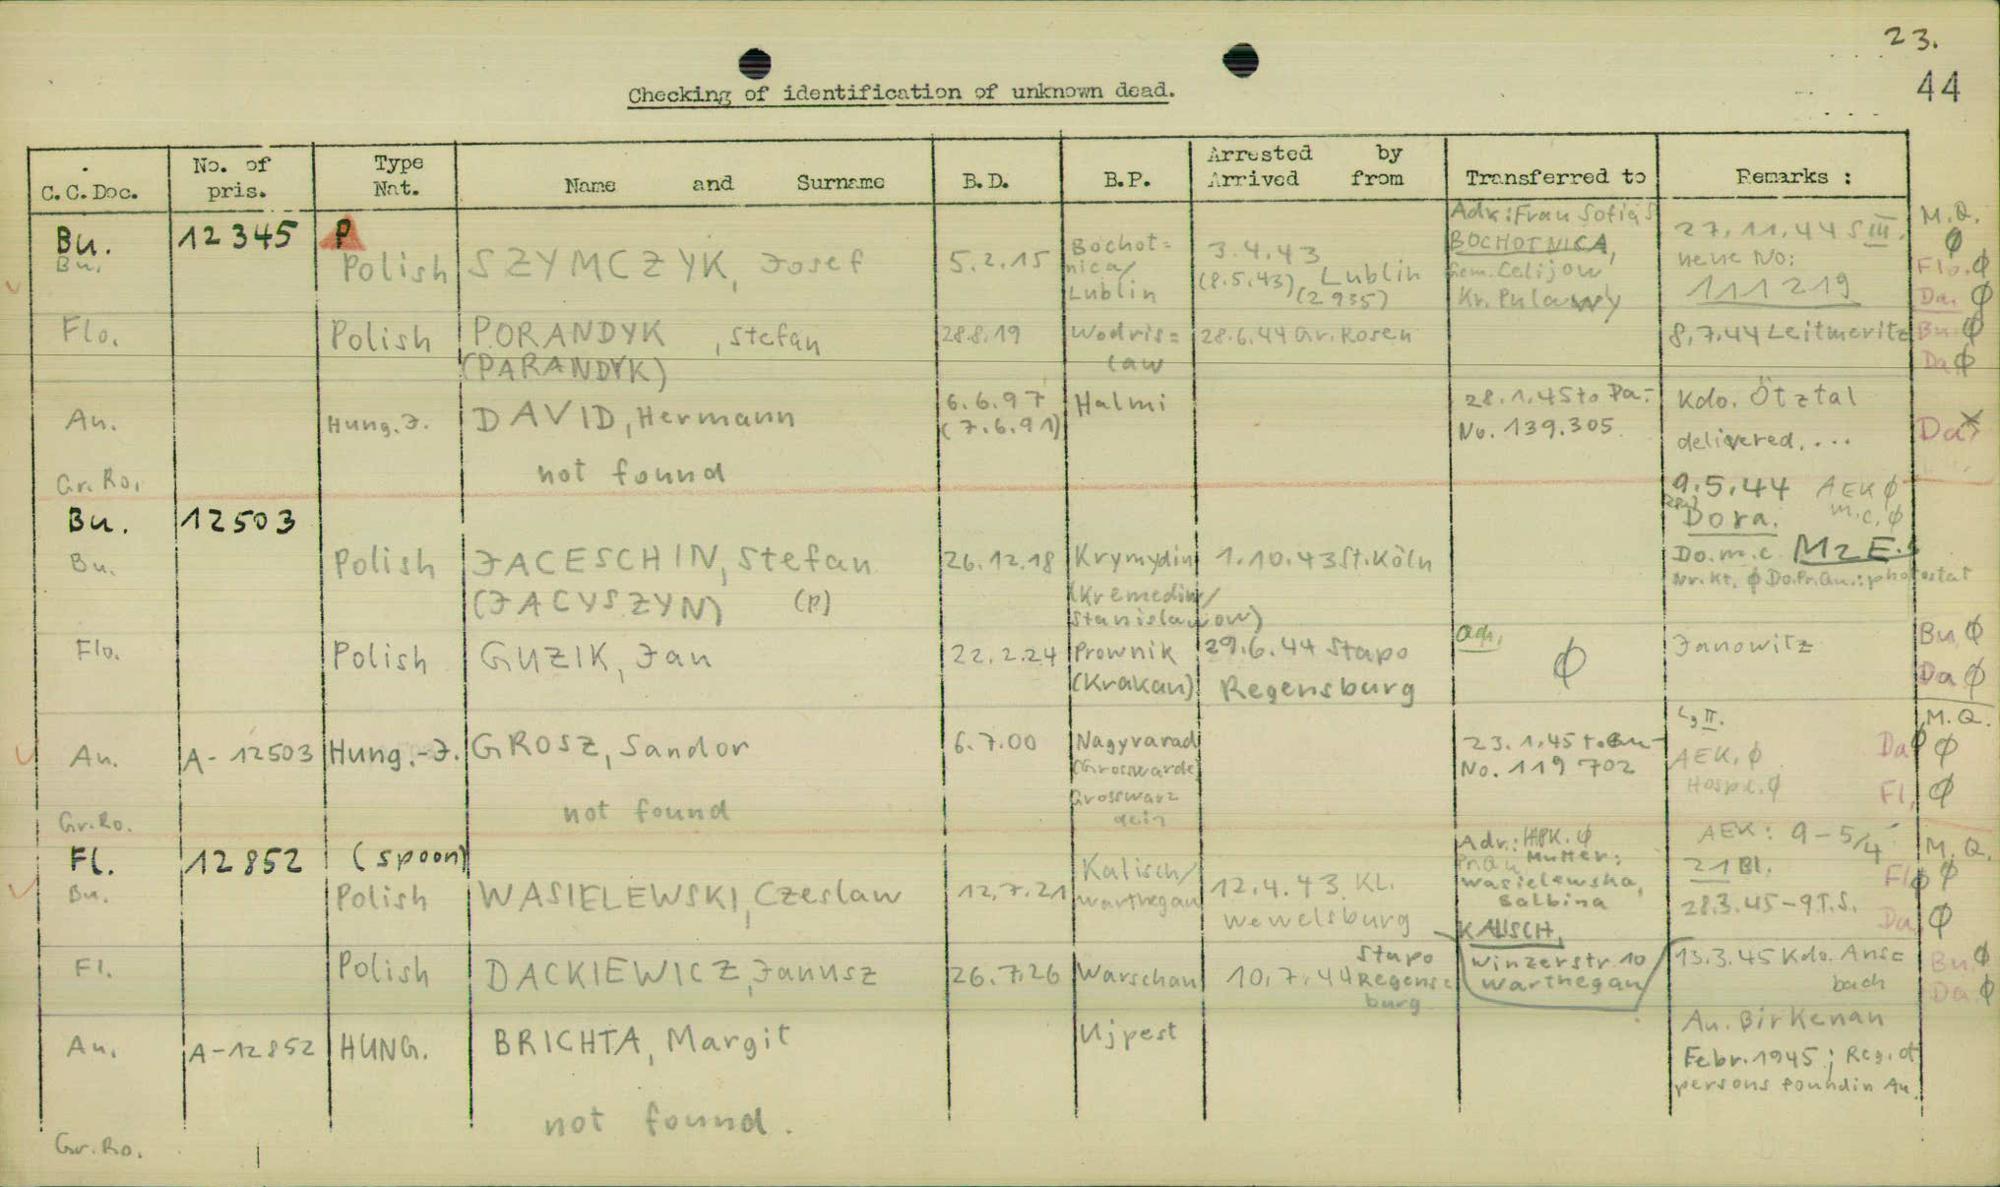 23.
44
Checking of identification of unknown dead.
C.C.Doc. No. of pris. Type Nat. Name and Surname B.D. B.P. Arrested by Arrived from Transferred to Remarks :
Bu. 12345 P
Bu. Polish SZYMCZYK, Josef 5.2.15 Bochot=
nica/
Lublin
3.4.43
(8.5.43) Lublin
(2935)
Adr: Frau Sofia S
BOCHOTNICA,
Gem. Celijow
Kr. Pulawy
27.11.44 S III.
neue No:
111219
M.Q.
Ø
Flo. Ø
Da. Ø
Flo. Polish PORANDYK, Stefan 28.8.19 Wodris= 28.6.44 Gr. Rosen 8.7.44 Leitmeritz Bu Ø
(PARANDYK) law Da Ø
An. Hung. J. DAVID, Hermann 6.6.97 Halmi 28.1.45 to Da.- Kdo. Ötztal
(7.6.91) No. 139.305 delivered.... Da
Gr. Ro. not found
Bu. 12503 9.5.44 AEK Ø
Dora. m.c. Ø
Bu. Polish JACESCHIN, Stefan 26.12.18 Krymydin 1.10.43 St. Köln Do. m.c. MzE.
(JACYSZYN) (P) (Kremedin/ Nr. Kt. Ø Do.Pr.Qu.: photostat
Stanislawow)
Flo. Polish GUZIK, Jan 22.2.24 Prownik 29.6.44 Stapo Adr. Ø Janowitz Bu Ø
(Krakau) Regensburg Da Ø
Lg II. M.Q.
An. A-12503 Hung.-J. GROSZ, Sandor 6.7.00 Nagyvarad 23.1.45 t. Bu- AEK. Ø Da Ø Ø
(Grosswarde No. 119702 Hospk. Ø Fl. Ø
Grosswarz
dein
Gr. Ro. not found
Fl. 12852 (spoon)
Bu. Polish WASIELEWSKI, Czeslaw 12.7.21 Kalisch/
Warthegau
12.4.43 KL.
Wewelsburg
Adr.: HPK. Ø
Frau Mutter:
Wasielewska,
Balbina
KALISCH,
Winzerstr. 10
Warthegau
AEK: 9-5/4
21 Bl.
28.3.45-9T.S.
M.Q.
Fl Ø Ø
Da. Ø
Fl. Polish DACKIEWICZ, Janusz 26.7.26 Warschau 10.7.44 Stapo
Regens=
burg
13.3.45 Kdo. Ans=
bach
Bu. Ø
Da. Ø
An. A-12852 HUNG. BRICHTA, Margit Ujpest An. Birkenau
Febr. 1945; Reg. of
persons found in Au.
not found.
Gr. Ro.